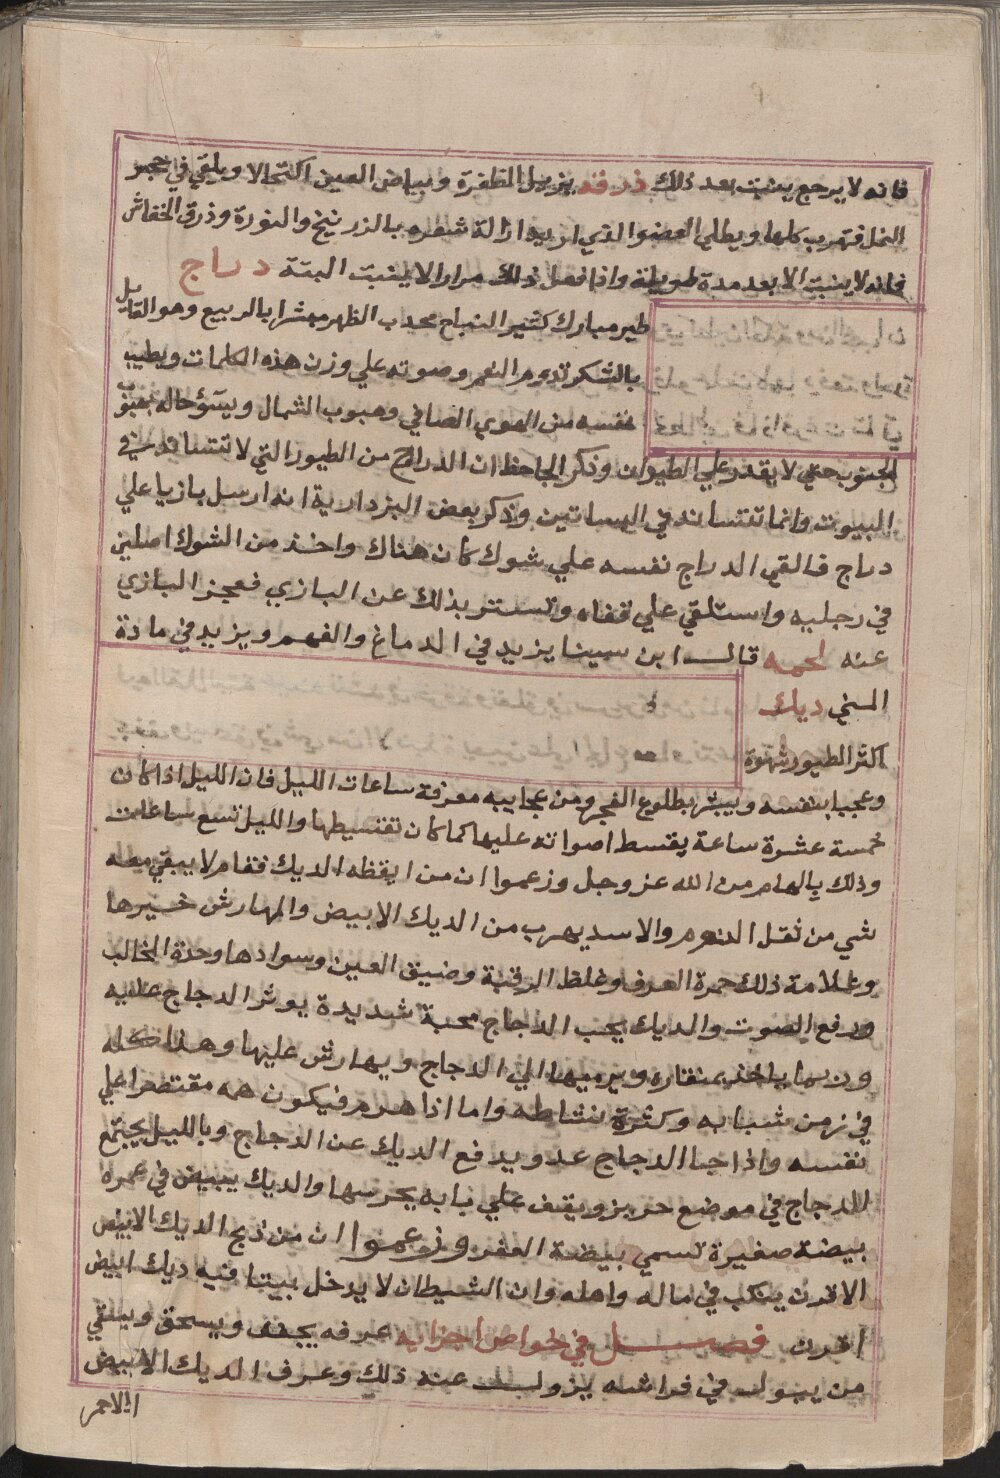 فانه لا يرجع ينبت بعد ذلك ذرقه يزيل الظفرة وبياض العين اكتحالا ويلقي في حجر
النمل فتهرب كلها ويطلي العضو الذي اريد ازالة شعره بالزرنيخ والنورة وذرق الخفاش
فانه لا ينبت الا بعد مدة طويلة واذا فعل ذلك مرارا لا ينبت البتة دراج
طير مبارك كثير النتاج محدب الظهر مبشرا بالربيع وهو القايل
بالشكر تدوم النعم وصوته علي وزن هذه الكلمات ويطيب
نفسه من الهوي الصافي وهبوب الشمال ويسؤ حاله بهبوب
الجنوب حتي لا يقدر علي الطيران وذكر الجاحظ ان الدراج من الطيور التي لا تتسافد في
البيوت وانما تتسافد في البساتين وذكر بعض البزدارية انه ارسل بازيا علي
دراج فالقي الدراج نفسه علي شوك كان هناك واخذ من الشوك اصلين
في رجليه واستلقي علي قفاه وتستر بذلك عن البازي فعجز البازي
عنه لحمه قال ابن سينا يزيد في الدماغ والفهم ويزيد في مادة
المني ديك
اكثر الطيور شهوة
وعجبا بنفسه ويبشر بطلوع الفجر ومن عجايبه معرفة ساعات الليل فان الليل اذا كان
خمسة عشرة ساعة يقسط اصواته عليها كما كان تقسيطها والليل تسع ساعات
وذلك بالهام من الله عز وجل وزعموا ان من ايقظه الديك فقام لا يبقي معه
شي من ثقل النوم والاسد يهرب من الديك الابيض والمهارش خيرها
وعلامة ذلك حمرة العرف وغلظ الرقبة وضيق العين وسوادها وحدة المخالب
ورفع الصوت والديك يحب الدجاج محبة شديدة يوثر الدجاج عليه
وربما ياخذ بمنقاره ويرميها الي الدجاج ويهارش عليها وهذا كله
في زمن شبابه وكثرة نشاطه واما اذا هرم فيكون همه مقتصرا علي
نفسه واذا جا الدجاج عدو يدفع الديك عن الدجاج وبالليل يجتمع
الدجاج في موضع حريز ويقف علي بابه يحرسها والديك يبيض في عمره
بيضة صغيرة تسمي بيضة العقر وزعموا ان من ذبح الديك الابيض
الاقرن ينكب في ماله واهله وان الشيطان لا يدخل بيتا فيه ديك ابيض
اقرن فصل في خواص اجزايه عرفه يجفف ويسحق ويسقي
من يبول في فراشه يزول عنه ذلك وعرف الديك الابيض
الاحمر